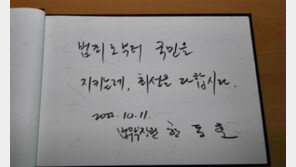 범죄로부터 국민을
지키는데, 최선을 다합시다.
10. 11.
법무부장관 한동훈